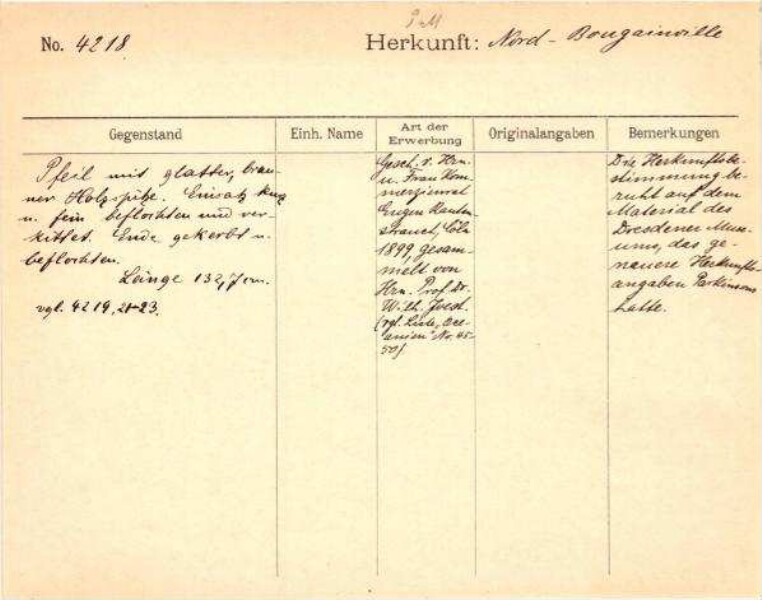 No. 4218
Herkunft: Nord-Bougainville
Gegenstand
Einh. Name
Art der
Erwerbung
Originalangaben
Bemerkungen
Pfeil mit glatter, brau-
ner Holzspitze. Einsatz kurz
u. fein beflochten und ver-
kittet. Ende gekerbt u.
beflochten.
Länge 132,7 cm.
vgl. 4219, 21-23.
Gesch. v. Hrn.
u. Frau Kom-
merzienrat
Eugen Rauten-
strauch, Cöln
1899, gesam-
melt von
Hrn. Prof. Dr.
Wilh. Joest.
(vgl. Liste „Oce-
anien" No. 45-
50)
Die Herkunftsbe-
stimmung be-
ruht auf dem
Material des
Dresdener Muse-
ums, das ge-
nauere Herkunfts-
angaben Parkinsons
hatte.